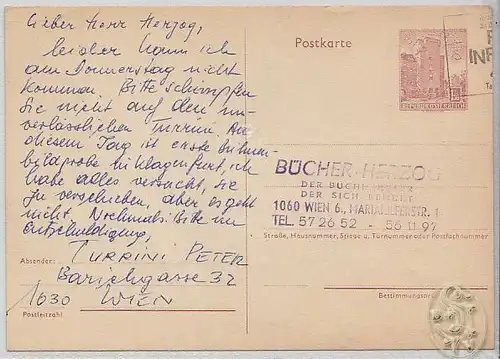 Lieber Herr Herzog,
leider kann ich
am Donnerstag nicht
kommen. Bitte schimpfen
Sie nicht auf den un-
verlässlichen Turrini. An
diesem Tag ist erste Bühnen-
bildprobe in Klagenfurt, ich
habe alles versucht, sie
zu verschieben, aber es geht
nicht. Nochmals: Bitte um
Entschuldigung,
TURRINI PETER
Absender:
1630 WIEN
Postleitzahl
Postkarte
REPUBLIK ÖSTERREICH
BÜCHER-HERZOG
DER
DER SICH
1060 WIEN 6., MARIAHILFERSTR. 1
TEL. 57 26 52 - 56 11 97
Straße, Hausnummer, Stiege u. Türnummer oder Postfachnummer